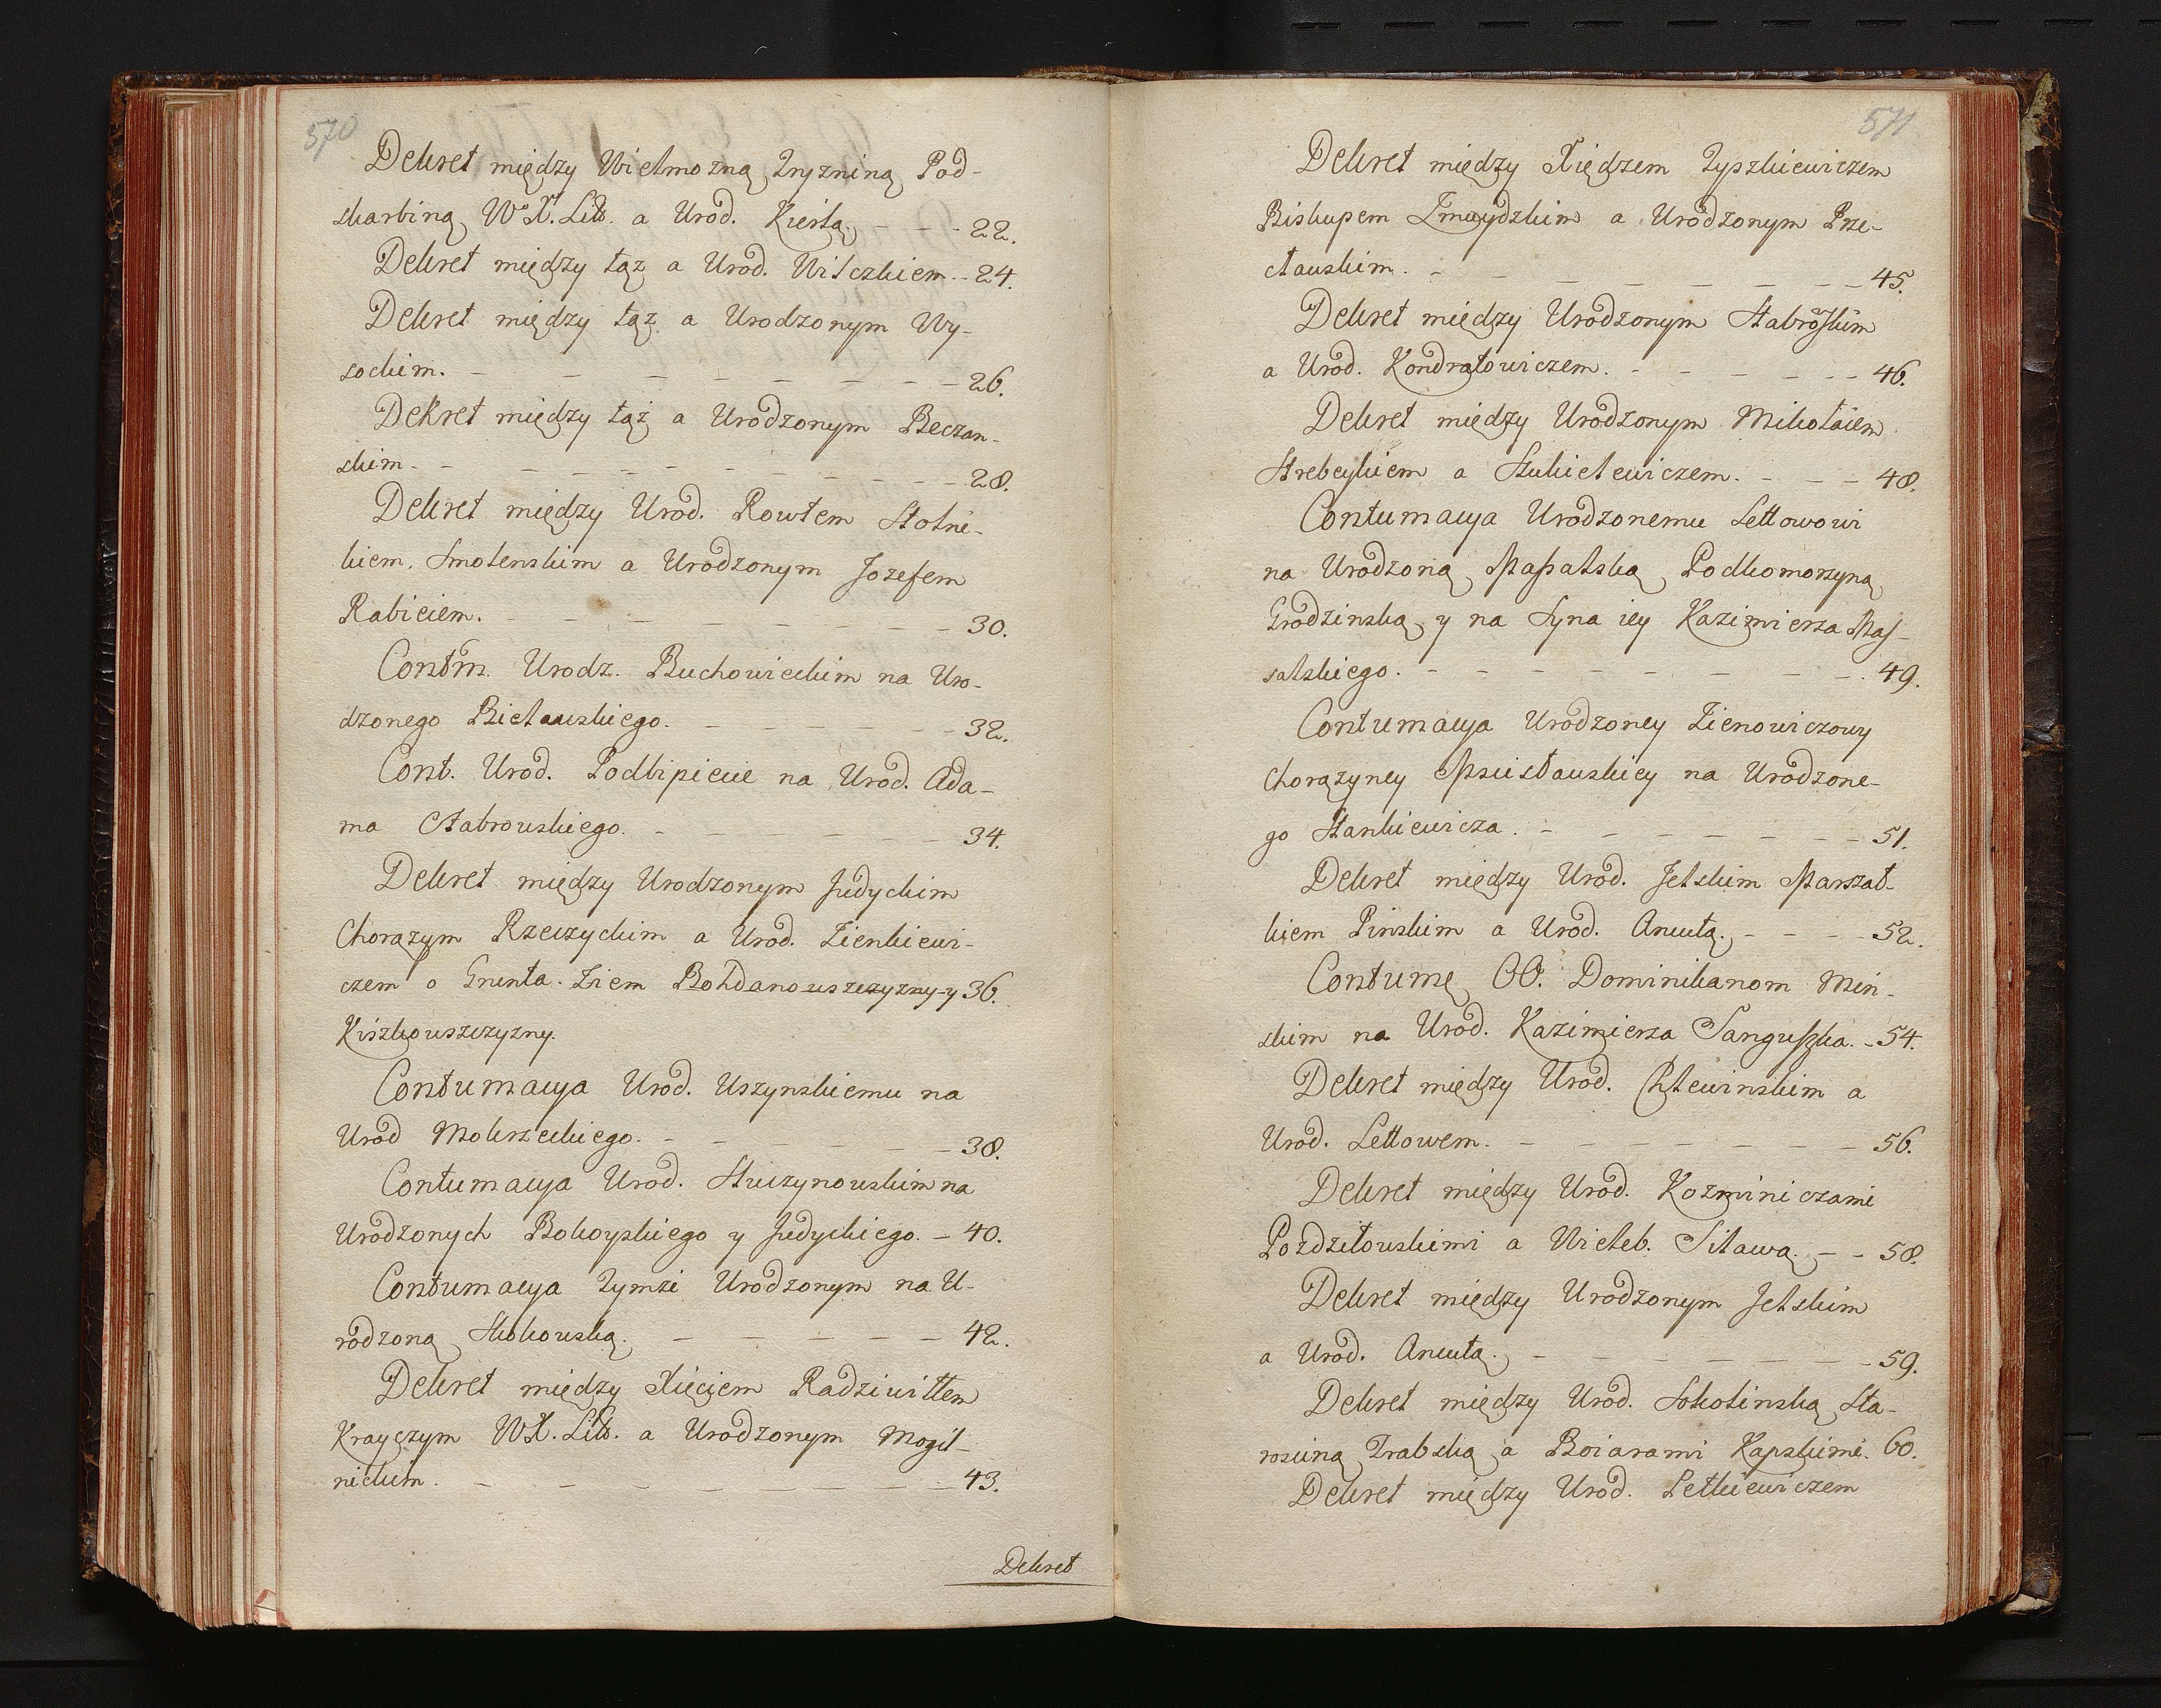 570
Dekret między Wielmożną Tryzniną Pod-
skarbiną W. X. Litt. a Urod. Kierłą. - - - 22.
Dekret między tąż a Urod. Wilczkiem. - 24.
Dekret między tąż a Urodzonym Wy-
sockim. - - - - - - - - 26.
Dekret między tąż a Urodzonym Beczan-
skim - - - - - - - - 28.
Dekret między Urod. Rowłem Stolni-
kiem. Smolenskim a Urodzonym Jozefem
Rabiciem. - - - - - - - - 30.
Contm. Urodz. Buchowieckim na Uro-
dzonego Bielawskiego. - - - - - - 32.
Cont. Urod. Podbipiecie na Urod. Ada-
ma Chabrowskiego. - - - - - - 34.
Dekret między Urodzonym Judyckim
Chorążym Rzeczyckim a Urod. Zienkiewi-
czem o Grunta. Ziem Bohdanowszczyzny y 36.
Kiszkowszczyzny.
Contumacya Urod. Uszynskiemu na
Urod Mokrzeckiego. - - - - - - 38.
Contumacya Urod. Stuczynowskim na
Urodzonych Bokoyskiego y Judyckiego. - 40.
Contumacya Tymże Urodzonym na U-
rodzoną Skokowską. - - - - - 42.
Dekret między Xięciem Radziwiłłem
Krayczym WX. Litt. a Urodzonym Mogil-
nickim. - - - - - - - - 43.
Dekret
571
Dekret między Xiędzem Tyszkiewiczem
Biskupem Zmuydzkim a Urodzonym Prze-
cławskim. - - - - - - - - 45.
Dekret między Urodzonym Stabrowskim
a Urod. Kondratowiczem. - - - - - - 46.
Dekret między Urodzonym Mikołaiem
Strebeykiem a Szukielewiczem. - - - 48.
Contumacya Urodzonemu Lettowowi
na Urodzoną Massalską Podkomorzyną
Grodzinską y na Syna iey Kazimierza Mas-
salskiego. - - - - - - - - 49.
Contumacya Urodzoney Zienowiczowy
Chorążyney Mscisławskiey na Urodzone-
go Stankiewicza. - - - - - - - 51.
Dekret między Urod. Jelskim Marszał-
kiem Pinskim a Urod. Ancutą. - - - - 52.
Contume OO. Dominikanom Min-
skim na Urod. Kazimierza Sanguszka. - 54.
Dekret między Urod. Chlewinskim a
Urod. Lettowem. - - - - - - - - 56.
Dekret między Urod. Kozminiczami
Pozdziłowskimi a Wieleb. Siławą. - - 58.
Dekret między Urodzonym Jelskim
a Urod. Ancutą. - - - - - - - - 59.
Dekret między Urod. Sokolinską Sta-
rosciną Trabską a Boiarami Kapskimi. 60.
Dekret między Urod. Letkiewiczem